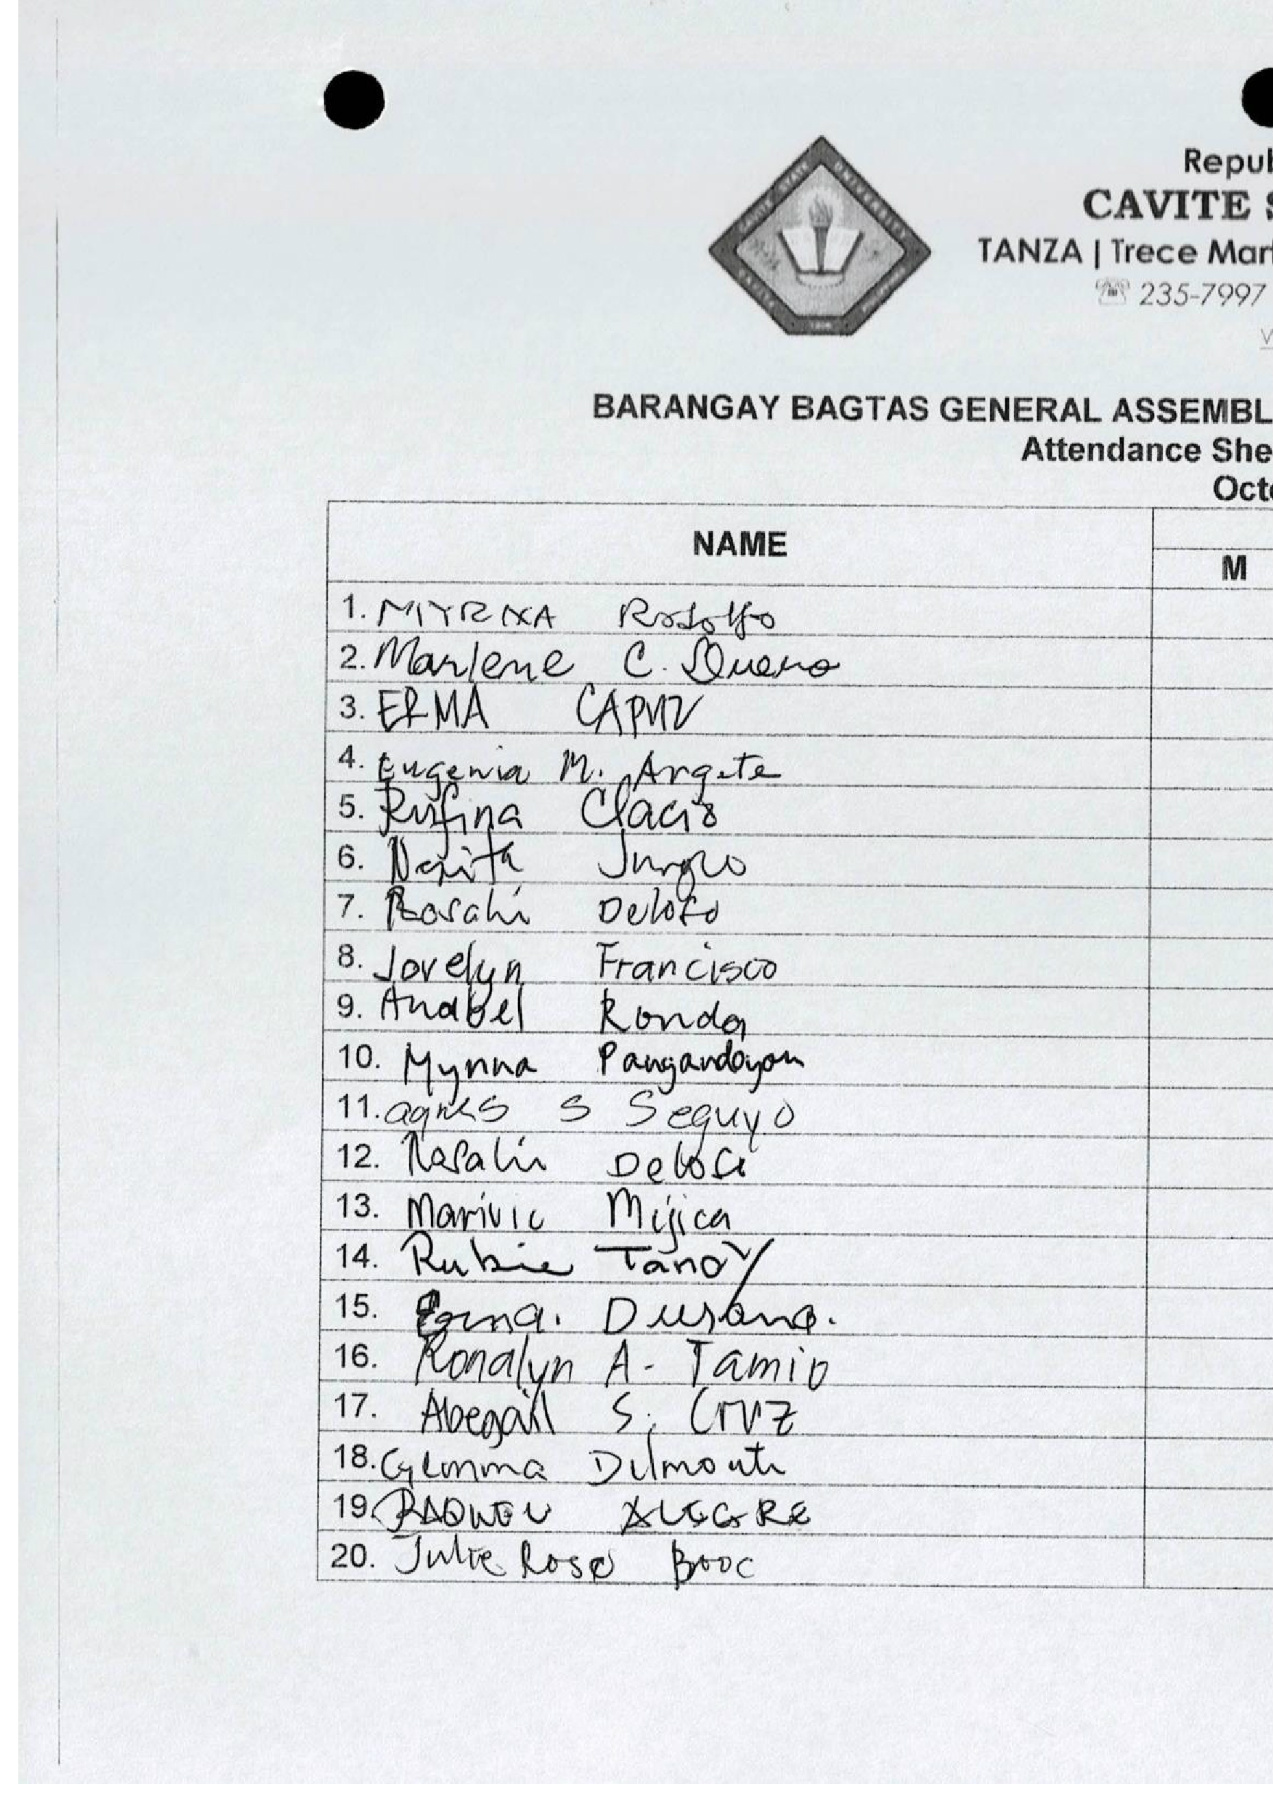 CAVITE STATE UNIVERSITY
CAVITE
Repub
CAVITE S
TANZA | Trece Mart
☏ 235-7997
BARANGAY BAGTAS GENERAL ASSEMBL
Attendance She
Octo
NAME
M
1. MYRNA Rodolfo
2. Marlene C. Dueno
3. ERMA CAPUZ
4. Eugenia M. Argete
5. Rufina Clacio
6. Nerita
7. Rosalin
8. Jovelyn Francisco
9. Anabel Ronda
10. Mynna Pangandoyon
11. agnes S Seguyo
12. Rosalin
13. Marivic Mijica
14. Rubie Tanoy
15. Durana.
16. Ronalyn A- Tamio
17. Abegail S. Cruz
18. Gemma Delmonte
19. RAQUEL ALEGRE
20. Julie Rose Booc